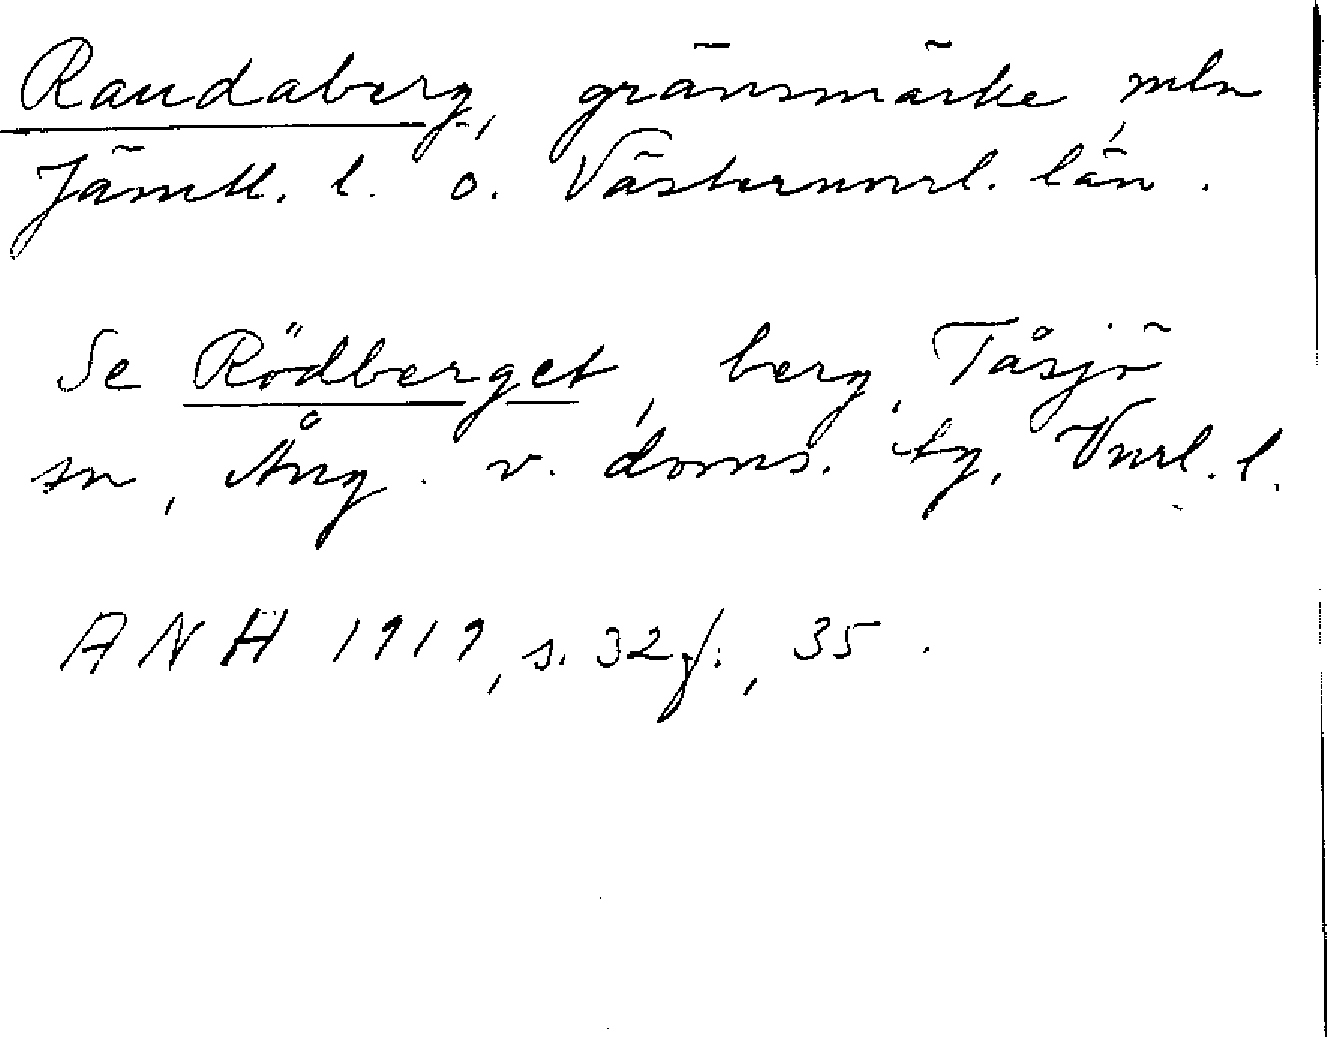 Raudaberg, gränsmärke mln
Jämtl. l. o. Västernorrl. län.
Se Rödberget, berg, Tåsjö
sn, Ång. v. doms. tg, Vnrl. l.
ANH 1919, s. 32 f., 35.